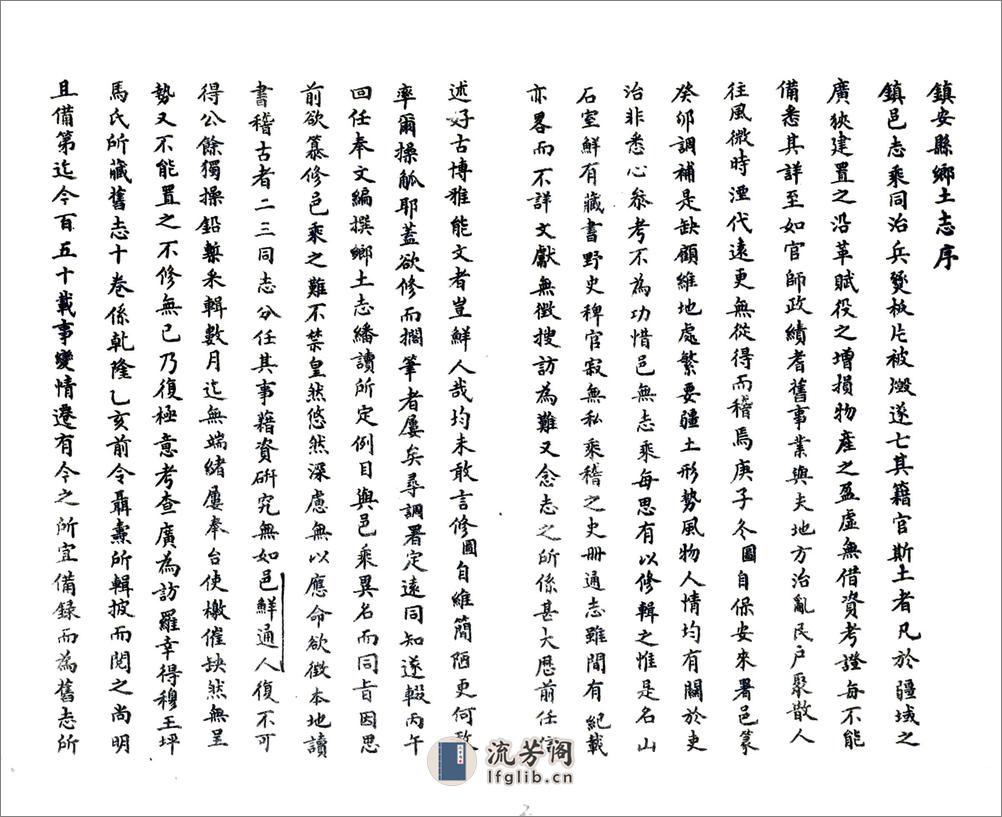 鎮安縣鄉土志序
鎮邑志乘同治兵燹板片被燬遂亡其籍官斯土者凡於疆域之
廣狹建置之沿革賦役之增損物產之盈虛無借資考證每不能
備悉其詳至如官師政績耆舊事業與夫地方治亂民戶聚散人
往風微時湮代遠更無從得而稽焉庚子冬圓自保安來署邑篆
癸卯調補是缺顧維地處繁要疆土形勢風物人情均有關於吏
治非悉心參考不為功惜邑無志乘每思有以修輯之惟是名山
石室鮮有藏書野史稗官寂無私乘稽之史冊通志雖間有紀載
亦畧而不詳文獻無徵搜訪為難又念志之所係甚大歷前任
述好古博雅能文者豈鮮人哉均未敢言修圓自維簡陋更何敢
率爾操觚耶蓋欲修而擱筆者屢矣尋調署定遠同知遂輟丙午
回任奉文編撰鄉土志繙讀所定例目與邑乘異名而同旨因思
前欲纂修邑乘之難不禁皇然悠然深慮無以應命欲徵本地讀
書稽古者二三同志分任其事藉資研究無如邑鮮通人復不可
得公餘獨操鉛槧采輯數月迄無端緒屢奉台使檄催缺然無呈
勢又不能置之不修無已乃復極意考查廣為訪羅幸得穆王坪
馬氏所藏舊志十卷係乾隆乙亥前令聶燾所輯披而閱之尚明
且備第迄今百五十載事變情遷有今之所宜備錄而為舊志所
流芳阁
lfglib.cn